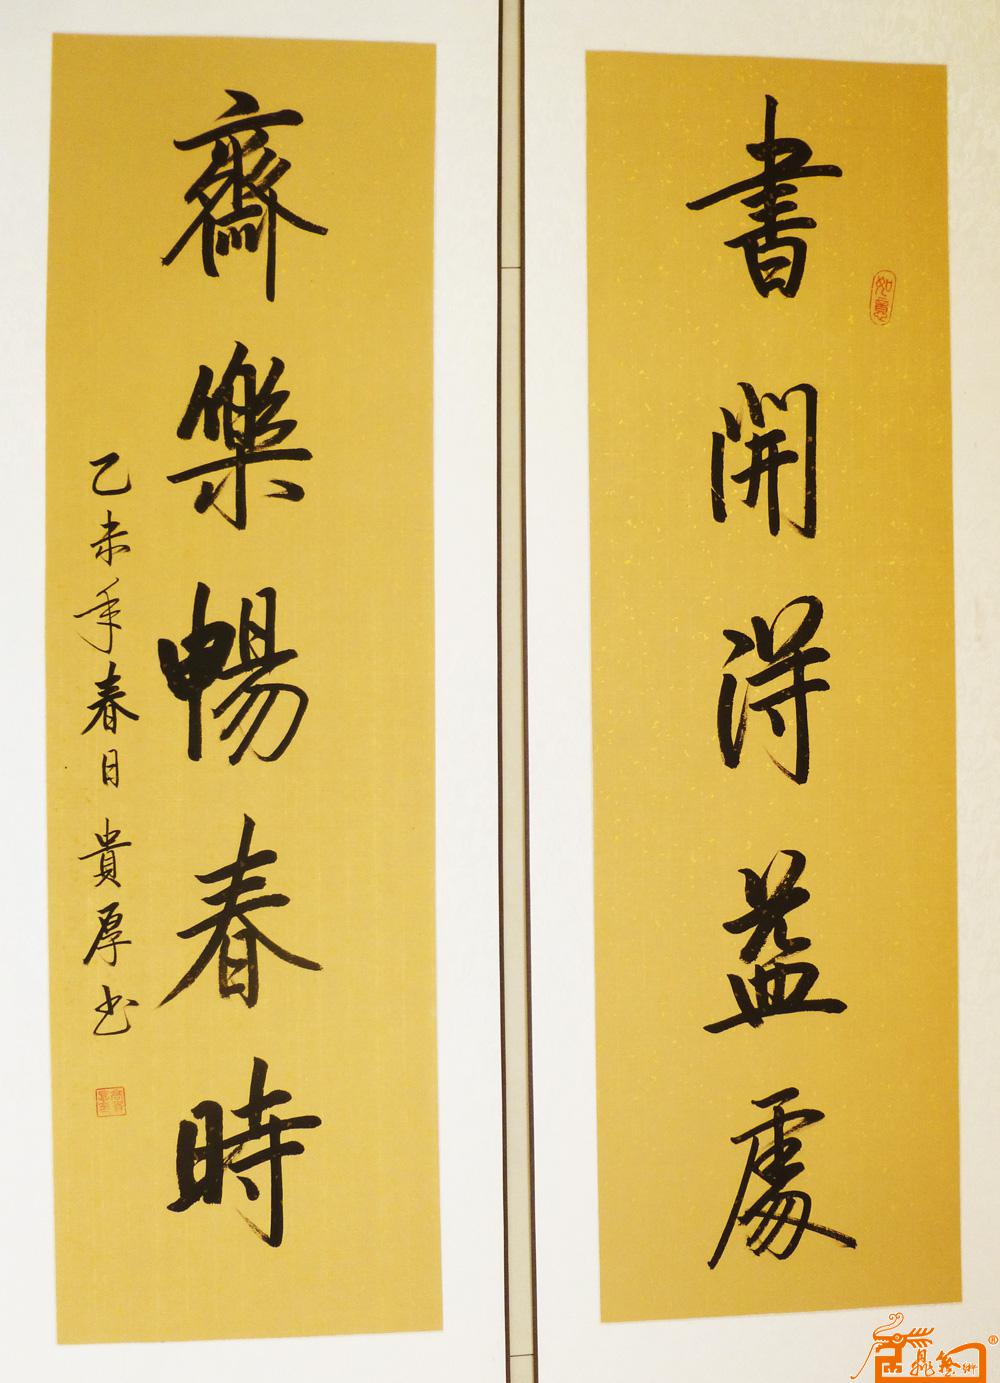 書開得益處
如意
齋樂暢春時
乙未年春日貴厚书